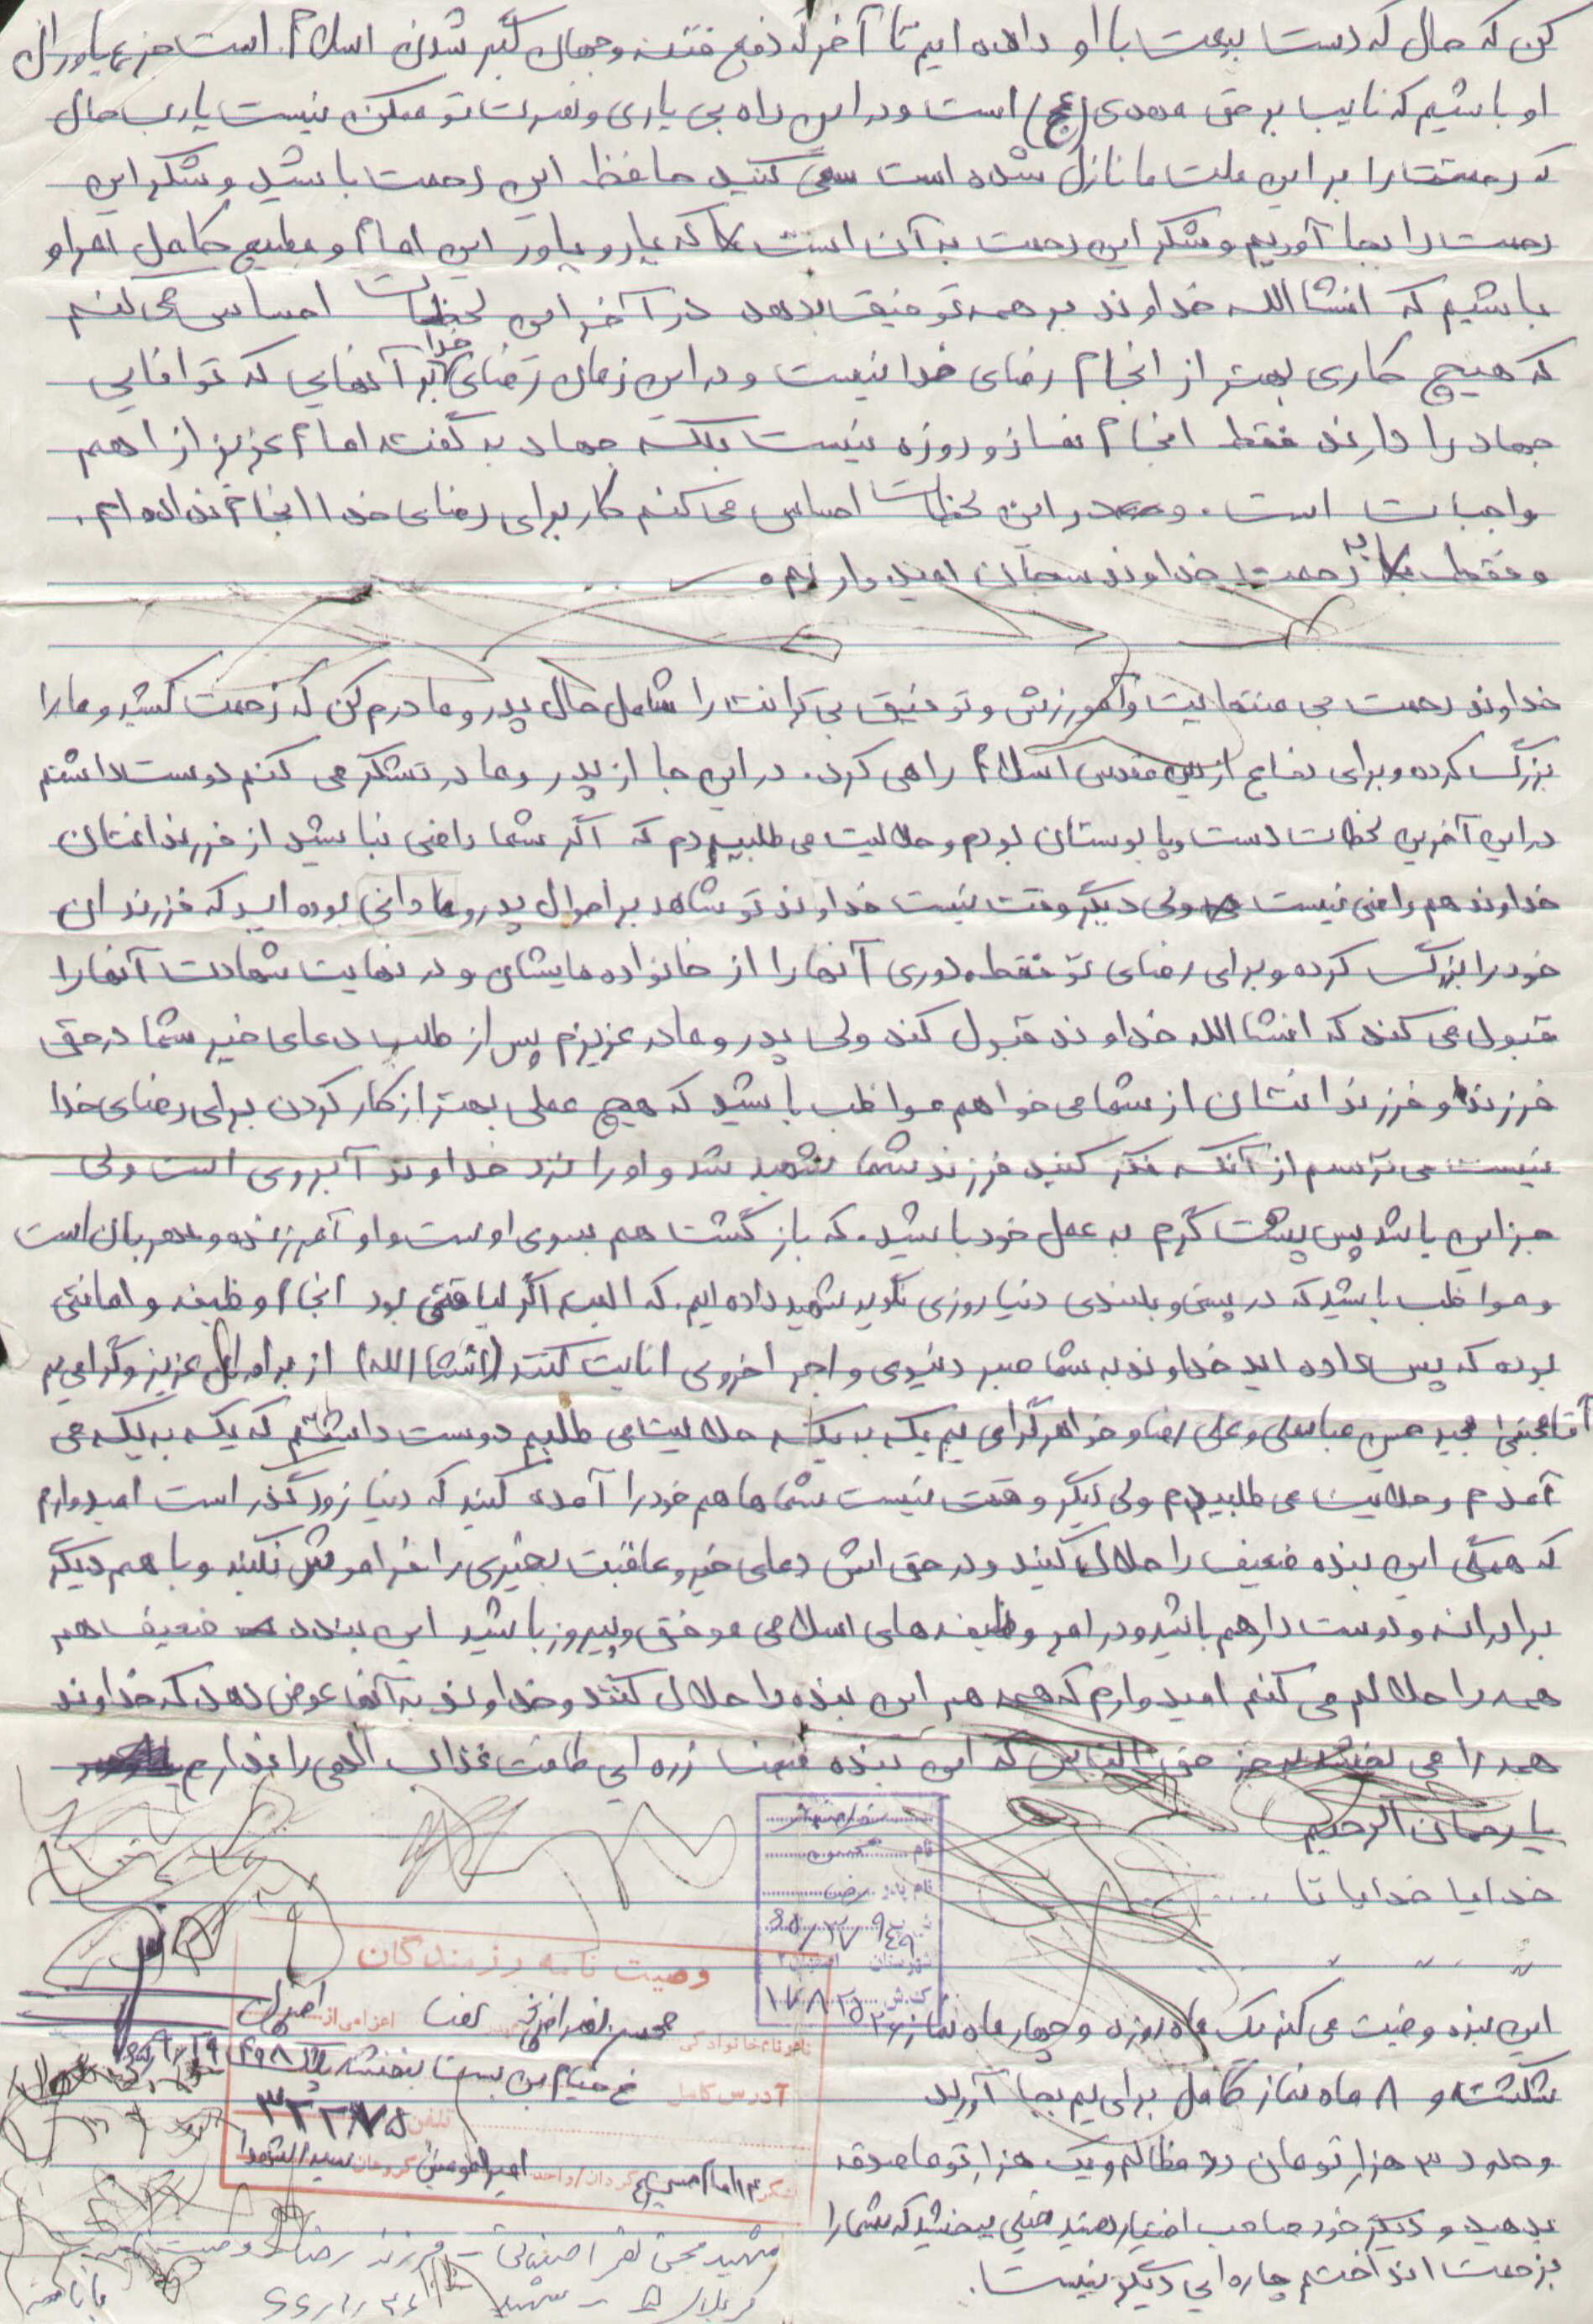 کن که حال که دست بیعت با او داده ایم تا آخر که دفع فتنه و جهان گیر شدن اسلام است جزء یاوران
او باشیم که نایب بر حق مهدی (عج) است و در این راه بی یاری و نصرت تو ممکن نیست یارب حال
که رحمتت را بر این ملت ما نازل شده است سعی کنید حافظ این رحمت باشید و شکر این
رحمت را بجا آوریم و شکر این رحمت به آن است که یار و یاور این امام و مطیع کامل امر او
باشیم که انشاالله خداوند بر همه توفیق بدهد در آخر این لحظات احساس می کنم
که هیچ کاری بهتر از انجام رضای خدا نیست و در این زمان رضای خدا بر آنهایی که توانایی
جهاد را دارند فقط انجام نماز و روزه نیست بلکه جهاد به گفته امام عزیز از اهم
واجبات است. و در این لحظات احساس می کنم کار برای رضای خدا انجام نداده ام.
و فقط به رحمت خداوند سبحان امیدوارم
خداوند رحمت بی منتهایت و آمورزش و توفیق بی کرانت را شامل حال پدر و مادرم کن که زحمت کشید و ما را
بزرگ کرده و برای دفاع از دین مقدس اسلام راهی کرد. در این جا از پدر و مادر تشکر می کنم دوست داشتم
در این آخرین لحظات دست و پا بوستان بودم و حلالیت می طلبیدم که اگر شما راضی نباشید از فرزندانتان
خداوند هم راضی نیست ولی دیگر وقت نیست خداوند تو شاهد بر احوال پدر و مادانی بوده اید که فرزندان
خود را بزرگ کرده و برای رضای تو فقط دوری آنها را از خانواده هایشان و در نهایت شهادت آنها را
قبول می کند که انشاالله خداوند قبول کند ولی پدر و مادر عزیزم پس از طلب دعای خیر شما در حق
فرزند و فرزندانتان از شما می خواهم مواظب باشید که هیچ عملی بهتر از کار کردن برای رضای خدا
نیست می ترسم از آنکه فکر کنید فرزند شما شهید شد و او را نزد خداوند آبروی است ولی
جز این باشد پس پشت گرم به عمل خود باشید. که بازگشت هم بسوی اوست و او آمرزنده و مهربان است
و مواظب باشید که در پستی و بلندی دنیا روزی نگوید شهید داده ایم. که البته اگر لیاقتی بود انجام وظیفه و امانتی
بوده که پس داده اید خداوند به شما صبر دنیوی و اجر اخروی انایت کنند (انشاالله) از برادران عزیز و گرامی یم
آقا مجتبی مجید حسن عباسعلی و علی رضا و خواهر گرامی یم یک به یک حلالیت می طلبم دوست داشتم که یک به یک می
آمدم و حلالیت می طلبیدم ولی دیگر وقت نیست شما ها هم خود را آمده کنید که دنیا زود گذر است امیدوارم
که همگی این بنده ضعیف را حلال کنید و در حق اش دعای خیر و عاقبت بخیری را فراموش نکنید و با هم دیگر
برادرانه و دوست دار هم باشید و در امر وظیفه های اسلامی موفق و پیروز باشید این بنده ضعیف هم
همه را حلالم می کنم امیدوارم که همه هم این بنده را حلال کنند و خداوند به آنها عوض دهد که خداوند
همه را می بخشد بجز حق الناس که این بنده ضمنا زره ایی طاقت عذاب الهی را ندارم
یا رحمان الرحیم
خدایا خدایا تا ......
نام
نام پدر رضا
شهرستان
وصیت نامه رزمندگان
نام و نام خانوادگی محسن نصر اصفهانی اعزامی از اصفهان
آدرس کامل خ بن بست بنفشه پلاک ۴۹۸
تلفن ۳۲۲۷۵
لشگر ۱۴ امام حسین (ع) گردان/واحد امیرالمومنین گروهان سیدالشهدا
این بنده وصیت می کنم یک ماه روزه و چهار ماه نماز
شکسته و ۸ ماه نماز کامل برای یم بجا آورید
و حدود ۳ هزار تومان رد مظالم و یک هزار توما صدقه
بدهید و دیگر خود صاحب اختیار هستید خیلی ببخشید که شما را
بزحمت انداختم چاره ایی دیگر نیست.
شهید محسن نصر اصفهانی - فرزند رضا - وصیت نامه
کربلای ۵ - شهید